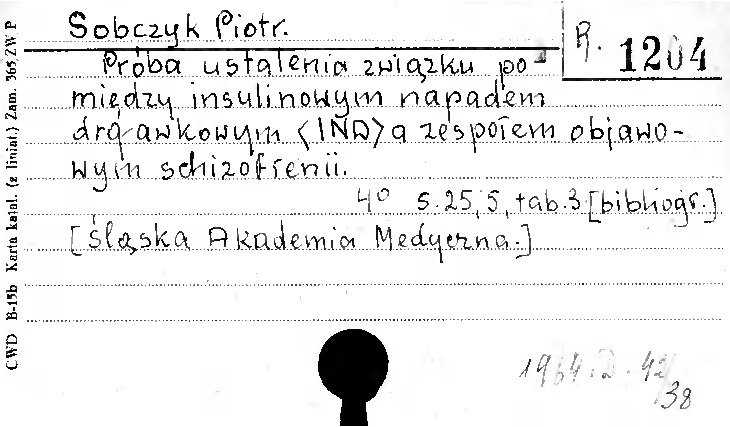 Sobczyk Piotr.
R. 1204
Próba ustalenia związku po-
między insulinowym napadem
drgawkowym <IND> a zespołem objawo-
wym schizofrenii.
4° s. 25, 5, tab. 3 [bibliogr.]
[Śląska Akademia Medyczna.]
1964.D.42/38
CWD B-15b Karta katal. (z liniat.) Zam. 365/ZWP